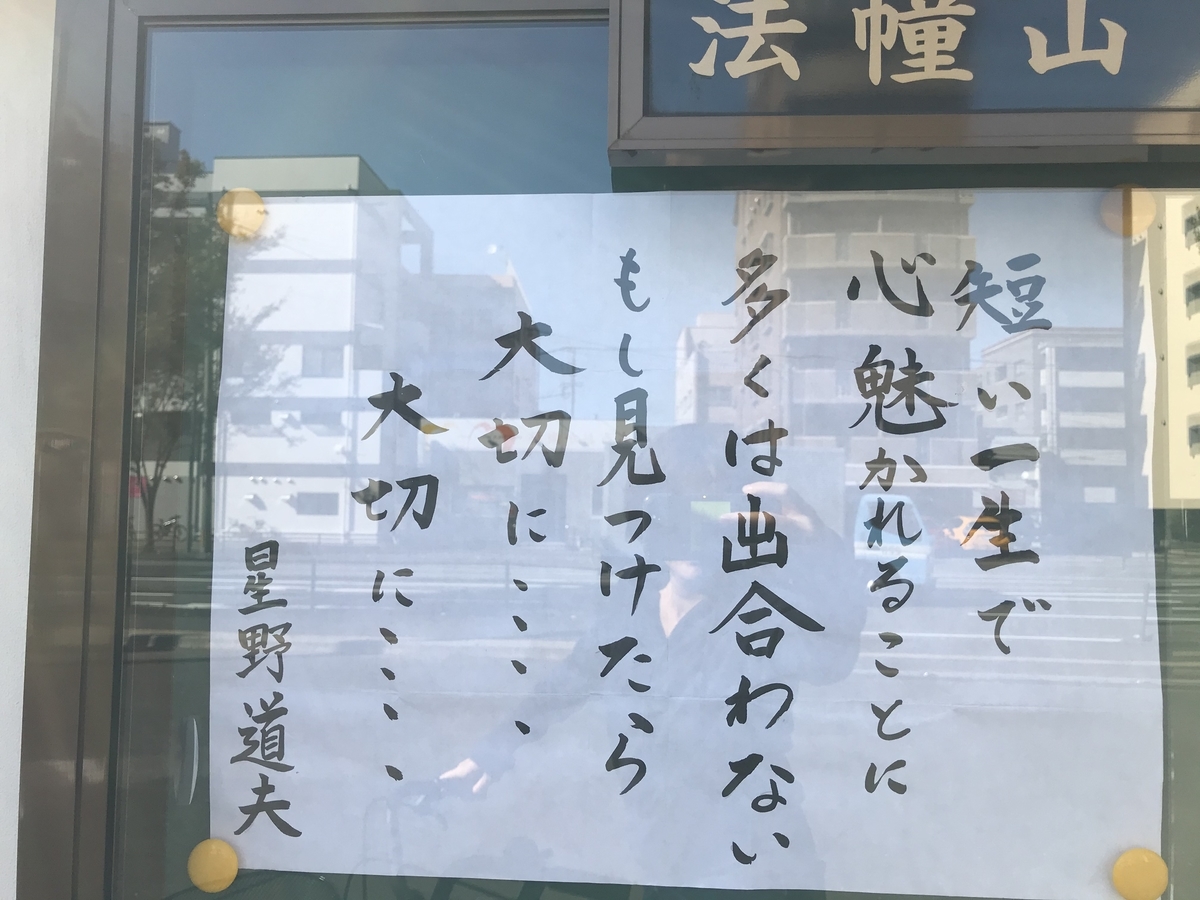 法幢山
短い一生で
心魅かれることに
多くは出合わない
もし見つけたら
大切に、、、、
大切に、、、、
星野道夫